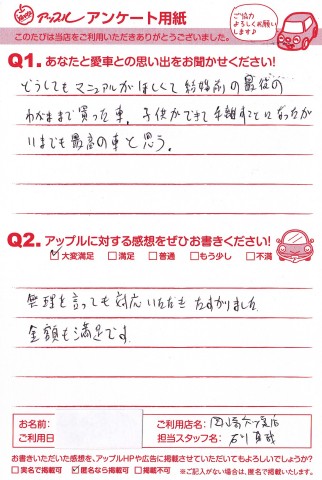 アップル アンケート用紙
ご協力
よろしくお願い
します♪
このたびは当店をご利用いただきありがとうございました。
Q1. あなたと愛車との思い出をお聞かせください!
どうしてもマニュアルがほしくて結婚前の最後の
わがままで買った車。子供ができて手離すことになったが
いまでも最高の車と思う。
Q2. アップルに対する感想をぜひお書きください!
☑大変満足 □満足 □普通 □もう少し □不満
無理を言っても対応いただき たすかりました
金額も満足です。
お名前:
ご利用店名: 岡崎
ご利用日
担当スタッフ名: 石川
お書きいただいた感想を、アップルHPや広告に掲載させていただいてもよろしいでしょうか?
□実名で掲載可 ☑匿名なら掲載可 □掲載不可 ※ご記入がない場合は、匿名で掲載いたします。